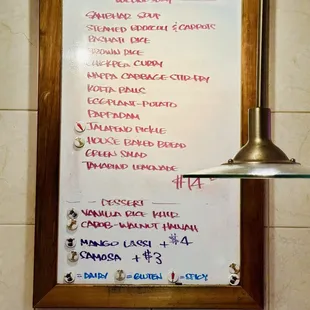 SAMBHAR SOUP
STEAMED BROCCOLI & CARROTS
BASMATI RICE
BROWN RICE
CHICKPEA CURRY
NAPPA CABBAGE STIR-FRY
KOFTA BALLS
EGGPLANT-POTATO
PAPPADAM
JALAPENO PICKLE
HOUSE BAKED BREAD
GREEN SALAD
TAMARIND LEMONADE
$14
DESSERT
VANILLA RICE KHIR
CAROB-WALNUT HALVAH
MANGO LASSI + $4
SAMOSA + $3
= DAIRY = GLUTEN = SPICY